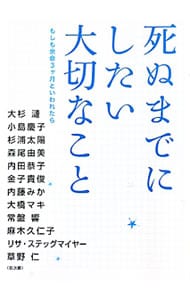 死ぬまでに
したい
大切なこと
もしも余命3ヶ月といわれたら
大杉 漣
小島慶子
杉浦太陽
森尾由美
内田恭子
金子貴俊
内藤みか
大橋マキ
常盤 響
麻木久仁子
リサ・ステッグマイヤー
草野 仁